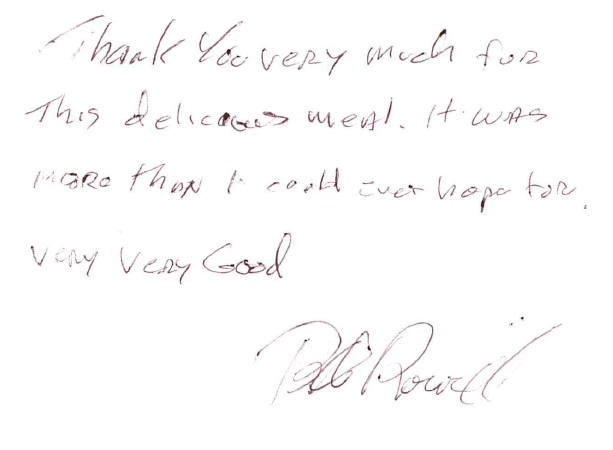 Thank You very much for
This delicious meal. It was
more than I could ever hope for.
very very Good